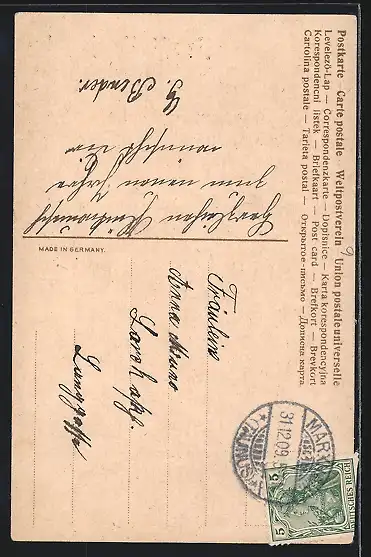 Postkarte — Carte postale — Weltpostverein — Union postale universelle
Levelező-Lap — Correspondenzkarte — Dopisnice — Karta korespondencyjna
Korespondenční lístek — Briefkaart — Post card — Brefkort — Brevkort
Cartolina postale — Tarjeta postal — Открытое письмо — Дописна карта
Herzlichen Glückwunsch
zum neuen Jahre
wünscht Dir
G. Bender.
MADE IN GERMANY.
Fräulein
Anna
31.12.09.
DEUTSCHES REICH
5
5